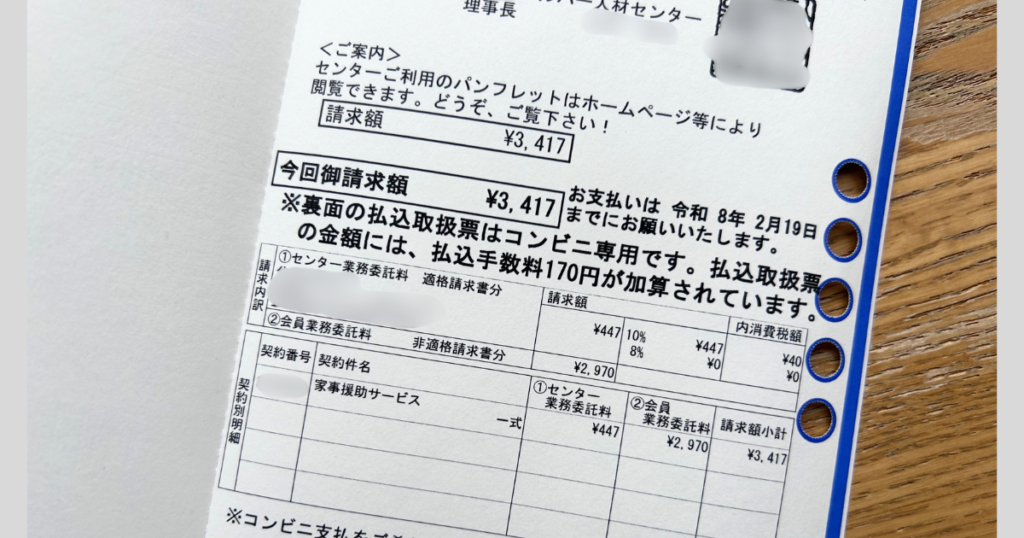 人材センター
理事長
＜ご案内＞
センターご利用のパンフレットはホームページ等により
閲覧できます。どうぞ、ご覧下さい！
請求額 ¥3,417
今回御請求額 ¥3,417
お支払いは 令和 8年 2月19日
までにお願いいたします。
※裏面の払込取扱票はコンビニ専用です。払込取扱票
の金額には、払込手数料170円が加算されています。
請求内訳
①センター業務委託料 適格請求書分
請求額 内消費税額
¥447 10% ¥447 ¥40
8% ¥0 ¥0
②会員業務委託料 非適格請求書分 ¥2,970
契約別明細
契約番号 契約件名 ①センター業務委託料 ②会員業務委託料 請求額小計
家事援助サービス
一式 ¥447 ¥2,970 ¥3,417
※コンビニ支払を